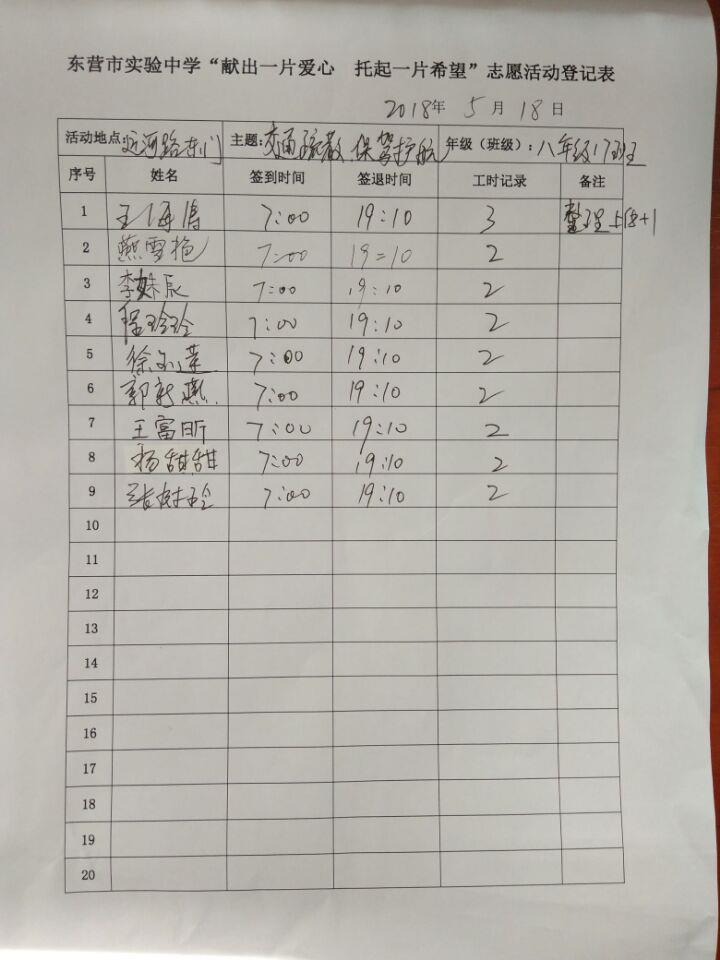 东营市实验中学“献出一片爱心　托起一片希望”志愿活动登记表
2018年 5 月 18 日
活动地点:运河路东门 主题:交通疏散 保驾护航 年级（班级）:八年级17班
序号 姓名 签到时间 签退时间 工时记录 备注
1 王海涛 7:00 19:10 3 整理上传+1
2 燕雪艳 7:00 19:10 2
3 李姝辰 7:00 19:10 2
4 程玲玲 7:00 19:10 2
5 徐玉莲 7:00 19:10 2
6 郭新燕 7:00 19:10 2
7 王富昕 7:00 19:10 2
8 杨甜甜 7:00 19:10 2
9 张树玲 7:00 19:10 2
10
11
12
13
14
15
16
17
18
19
20